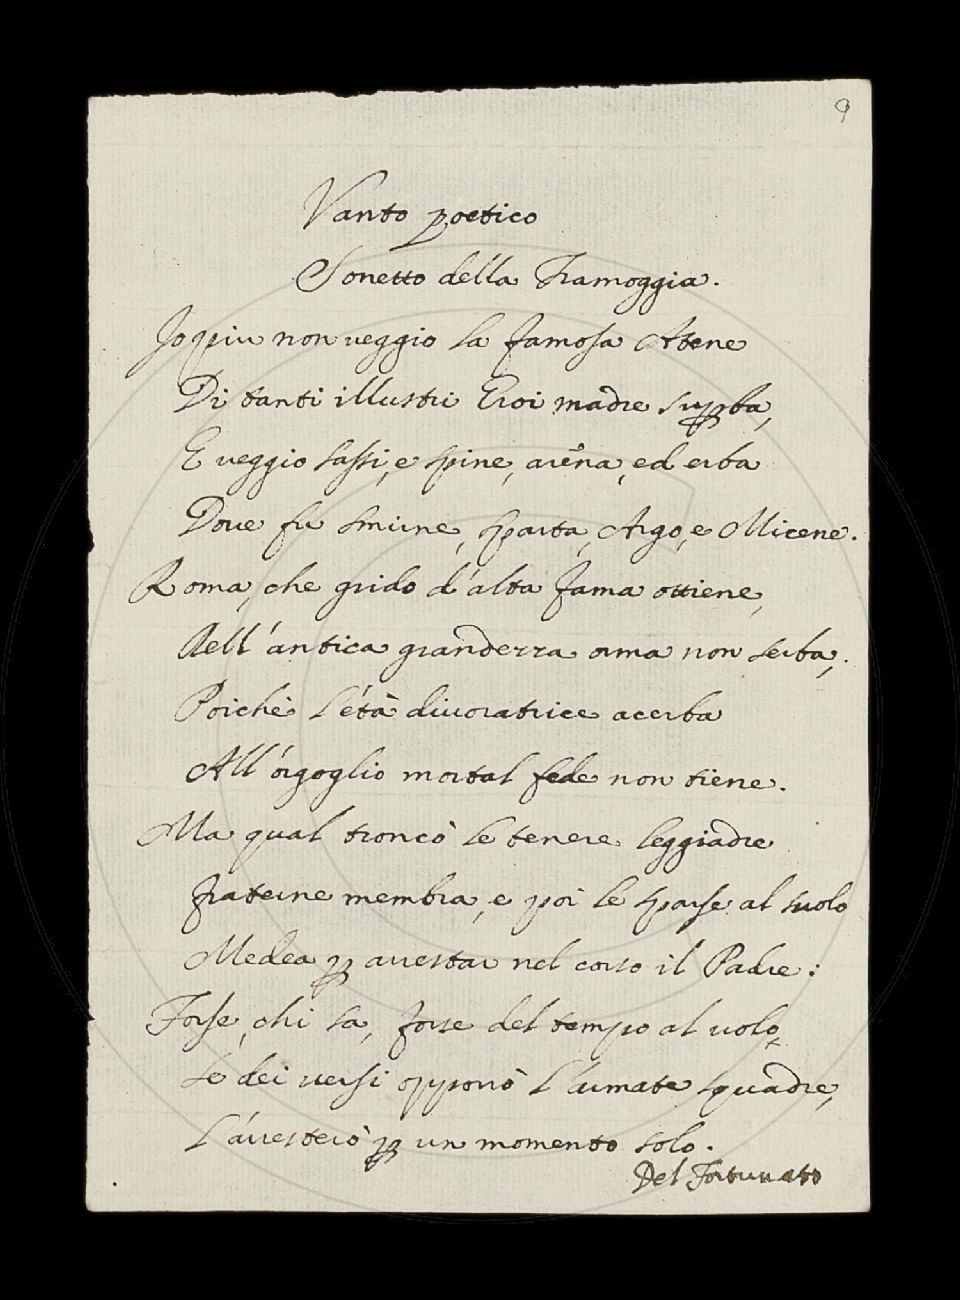 9
Vanto poetico
Sonetto della Tramoggia.
Io piu non ueggio la famosa Atene
Di tanti illustri Eroi madre suꝑba,
E ueggio sassi, e spine, arena, ed erba
Doue fu Smirne, Sparta, Argo, e Micene.
Roma, che grido d'alta fama ottiene,
Dell'antica grandezza orma non serba,
Poichè l'età diuoratrice acerba
All'orgoglio mortal fede non tiene.
Ma qual troncò le tenere leggiadre
fraterne membra, e poi le sparse al suolo
Medea ꝑ arrestar nel corso il Padre:
Forse, chi sa, forse del tempo al uolo,
Se dei uersi opporrò l'armate squadre,
L'arresterò ꝑ un momento solo.
Del Fortunato